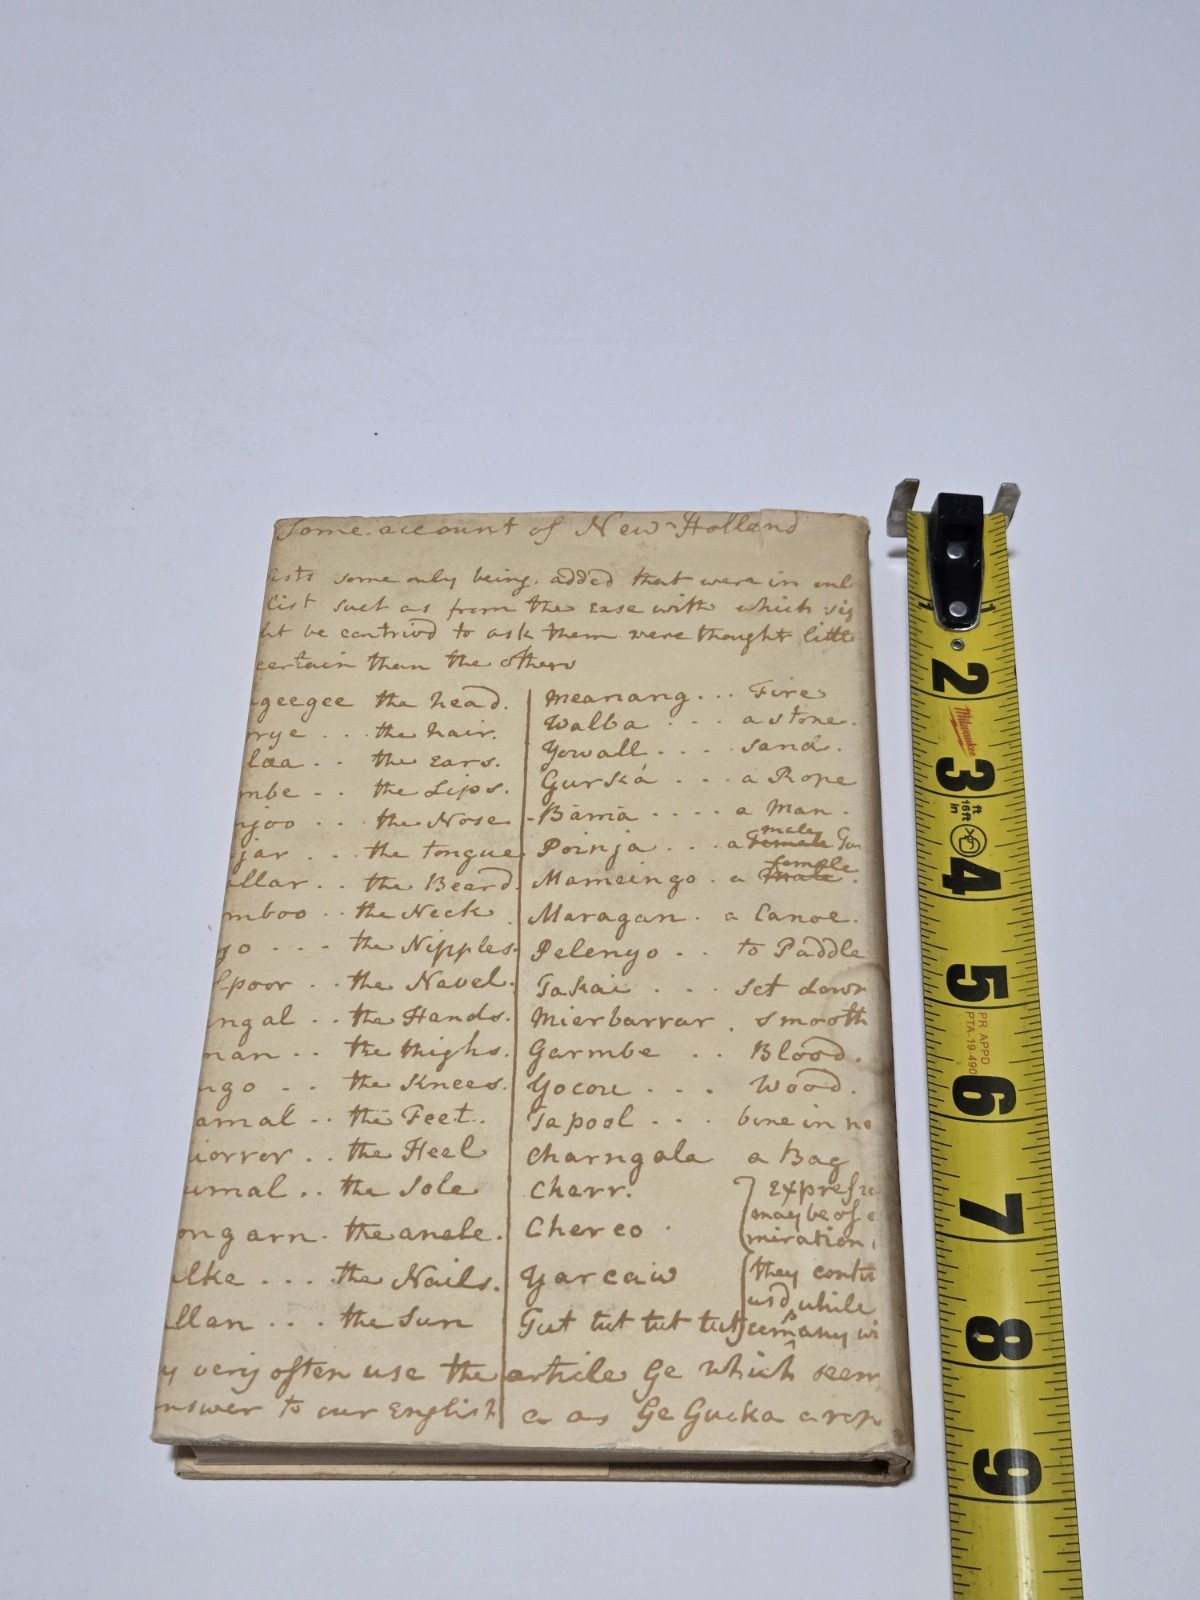 Some account of New Holland
ists some only being added that were in onl
list such as from the ease with which sig
ht be contrivd to ask them were thought little
certain than the others
geegee the head.
rye . . . the hair.
læa . . the Ears.
mbe . . the Lips.
njoo . . . the Nose
jar . . . the tongue
illar . . the Beard.
mboo . . the Neck
go . . . the Nipples.
lpoor . . the Navel.
ngal . . the Hands.
man . . the thighs.
ngo . . the Knees.
amal . . the Feet.
iorror . . the Heel
umal . . the Sole
ongarn . the ancle.
ulke . . . the Nails.
llan . . . the Sun
Meanang . . . Fire
Walba . . . a stone.
Yowall . . . . sand.
Gurká . . . a Rope
Bāma . . . . a Man.
Poinja . . . a Female male
Mameingo . a Male female .
Maragan . a Canoe.
Pelenyo . . to Paddle
Takai . . . set down
Mierbarrar . smooth
Garmbe . . Blood.
Yocou . . . Wood.
Tapool . . . bone in no
Charngala a Bag
Cherr.
Cherco .
Yarcaw
Tut tut tut tut
expressi
may be of a
miration,
they conti
usd while
company wi
y very often use the article Ge which seem
nswer to our English a as Ge Gurka a rop
1 1
2
Milwaukee
3
ft
16ft
in
4
5
PR APPD
PTA-19-490
6
7
8
9